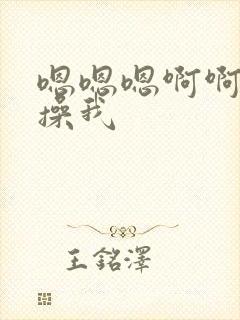 嗯嗯嗯啊啊
操我
王銘澤